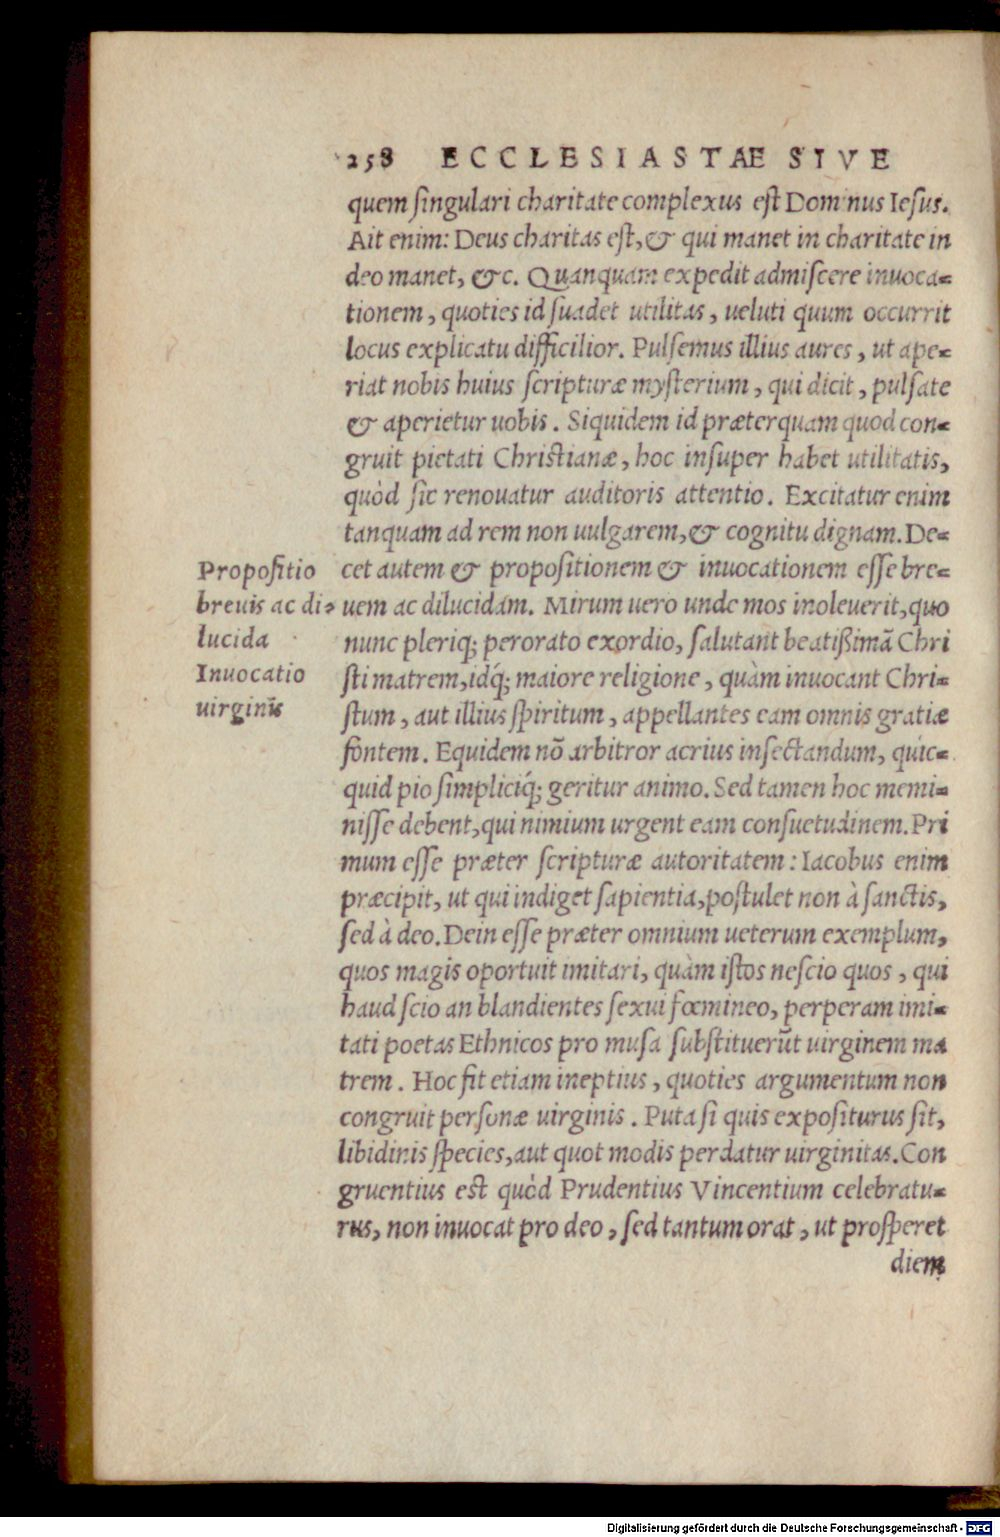 258 ECCLESIASTAE SIVE
quem singulari charitate complexus est Dominus Iesus.
Ait enim: Deus charitas est, & qui manet in charitate in
deo manet, &c. Quanquam expedit admiscere inuoca-
tionem, quoties id suadet utilitas, ueluti quum occurrit
locus explicatu difficilior. Pulsemus illius aures, ut ape-
riat nobis huius scripturæ mysterium, qui dicit, pulsate
& aperietur uobis. Siquidem id præterquam quod con-
gruit pietati Christianæ, hoc insuper habet utilitatis,
quòd sic renouatur auditoris attentio. Excitatur enim
tanquam ad rem non uulgarem, & cognitu dignam. De-
cet autem & propositionem & inuocationem esse bre-
uem ac dilucidam. Mirum uero unde mos inoleuerit, quo
nunc pleriq; perorato exordio, salutant beatißimã Chri
sti matrem, idq́; maiore religione, quàm inuocant Chri-
stum, aut illius spiritum, appellantes eam omnis gratiæ
fontem. Equidem nõ arbitror acrius insectandum, quic-
quid pio simpliciq́; geritur animo. Sed tamen hoc memi-
nisse debent, qui nimium urgent eam consuetudinem. Pri
mum esse præter scripturæ autoritatem: Iacobus enim
præcipit, ut qui indiget sapientia, postulet non à sanctis,
sed à deo. Dein esse præter omnium ueterum exemplum,
quos magis oportuit imitari, quàm istos nescio quos, qui
haud scio an blandientes sexui fœmineo, perperam imi-
tati poetas Ethnicos pro musa substituerũt uirginem ma
trem. Hoc fit etiam ineptius, quoties argumentum non
congruit personæ uirginis. Puta si quis expositurus sit,
libidinis species, aut quot modis perdatur uirginitas. Con
gruentius est quòd Prudentius Vincentium celebratu-
rus, non inuocat pro deo, sed tantum orat, ut prosperet
diem
Propositio
breuis ac di-
lucida
Inuocatio
uirginis
Digitalisierung gefördert durch die Deutsche Forschungsgemeinschaft - DFG